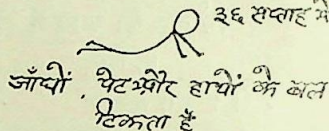 ३६ सप्ताह में
जाँघों, पेट और हाथों के बल
टिकता है